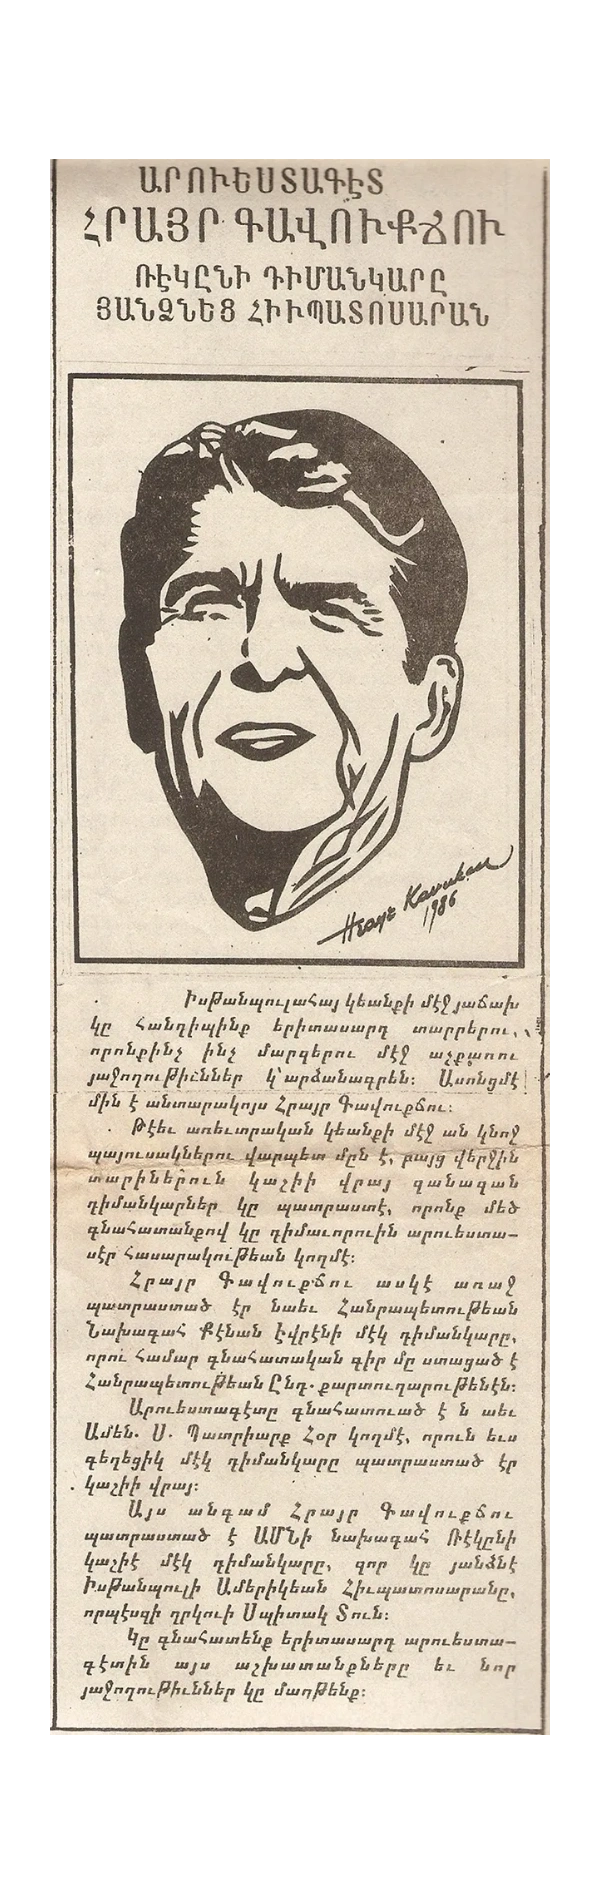 ԱՐՈՒԵՍՏԱԳԷՏ
ՀՐԱՅՐ ԳԱՎՈՒՔՃՈՒ
ՌԷԿԸՆԻ ԴԻՄԱՆԿԱՐԸ
ՅԱՆՁՆԵՑ ՀԻՒՊԱՏՈՍԱՐԱՆ
1986
Իսթանպուլահայ կեանքի մէջ յաճախ
կը հանդիպինք երիտասարդ տարրերու,
որոնքինչ ինչ մարզերու մէջ աչքառու
յաջողութիւններ կ՚արձանագրեն։ Ասոնցմէ
մին է անտարակոյս Հրայր Գավուքճու։
Թէեւ առեւտրական կեանքի մէջ ան կնոջ
պայուսակներու վարպետ մըն է, բայց վերջին
տարիներուն կաշիի վրայ զանազան
դիմանկարներ կը պատրաստէ, որոնք մեծ
գնահատանքով կը դիմաւորուին արուեստա-
սէր հասարակութեան կողմէ։
Հրայր Գավուքճու ասկէ առաջ
պատրաստած էր նաեւ Հանրապետութեան
Նախագահ Քէնան Էվրէնի մէկ դիմանկարը,
որու համար գնահատական գիր մը ստացած է
Հանրապետութեան Ընդ. քարտուղարութենէն։
Արուեստագէտը գնահատուած է ն աեւ
Ամեն. Ս. Պատրիարք Հօր կողմէ, որուն եւս
գեղեցիկ մէկ դիմանկարը պատրաստած էր
կաշիի վրայ։
Այս անգամ Հրայր Գավուքճու
պատրաստած է ԱՄՆի նախագահ Ռէկընի
կաշիէ մէկ դիմանկարը, զոր կը յանձնէ
Իսթանպուլի Ամերիկեան Հիւպատոսարանը,
որպէսզի ղրկուի Սպիտակ Տուն։
Կը գնահատենք երիտասարդ արուեստա-
գէտին այս աշխատանքները եւ նոր
յաջողութիւններ կը մաղթենք։